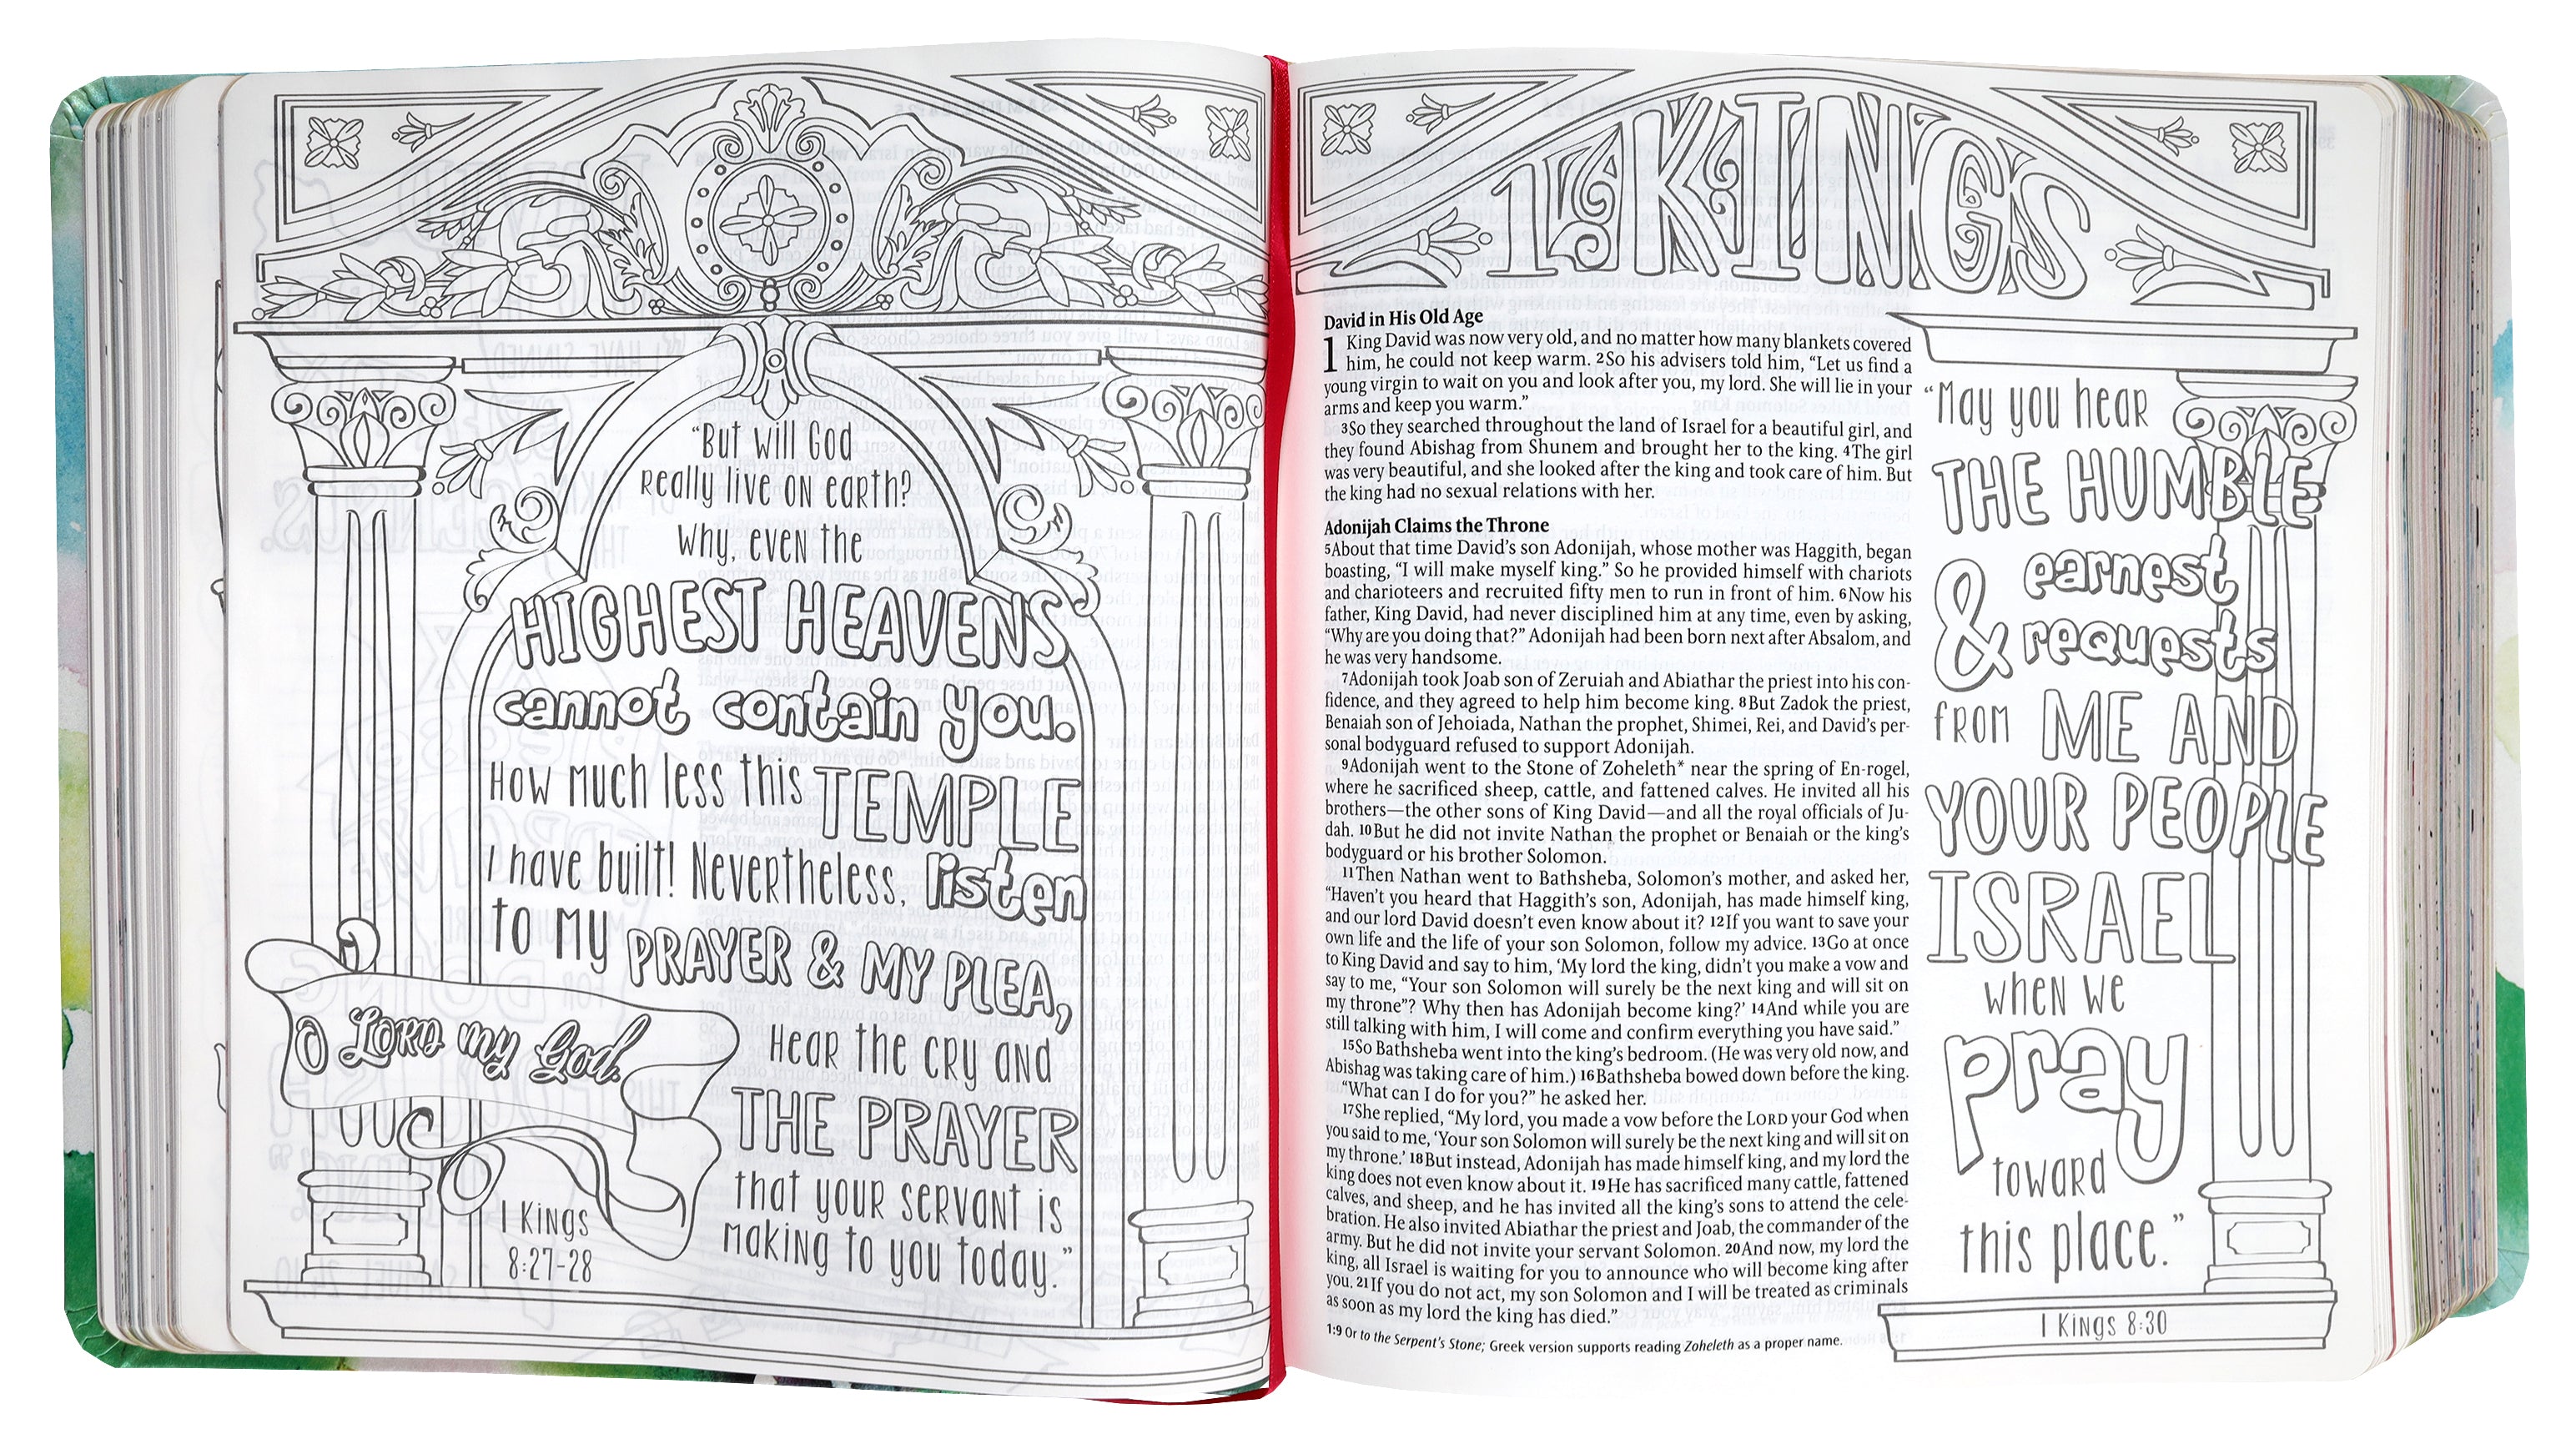 “But will God
really live on earth?
Why, even the
HIGHEST HEAVENS
cannot contain you.
How much less this TEMPLE
I have built! Nevertheless, listen
to my PRAYER & MY PLEA,
O LORD my God.
Hear the cry and
THE PRAYER
that your servant is
making to you today.”
1 Kings
8:27-28
1 KINGS
David in His Old Age
1 King David was now very old, and no matter how many blankets covered
him, he could not keep warm. 2So his advisers told him, “Let us find a
young virgin to wait on you and look after you, my lord. She will lie in your
arms and keep you warm.”
3So they searched throughout the land of Israel for a beautiful girl, and
they found Abishag from Shunem and brought her to the king. 4The girl
was very beautiful, and she looked after the king and took care of him. But
the king had no sexual relations with her.
Adonijah Claims the Throne
5About that time David’s son Adonijah, whose mother was Haggith, began
boasting, “I will make myself king.” So he provided himself with chariots
and charioteers and recruited fifty men to run in front of him. 6Now his
father, King David, had never disciplined him at any time, even by asking,
“Why are you doing that?” Adonijah had been born next after Absalom, and
he was very handsome.
7Adonijah took Joab son of Zeruiah and Abiathar the priest into his con-
fidence, and they agreed to help him become king. 8But Zadok the priest,
Benaiah son of Jehoiada, Nathan the prophet, Shimei, Rei, and David’s per-
sonal bodyguard refused to support Adonijah.
9Adonijah went to the Stone of Zoheleth* near the spring of En-rogel,
where he sacrificed sheep, cattle, and fattened calves. He invited all his
brothers—the other sons of King David—and all the royal officials of Ju-
dah. 10But he did not invite Nathan the prophet or Benaiah or the king’s
bodyguard or his brother Solomon.
11Then Nathan went to Bathsheba, Solomon’s mother, and asked her,
“Haven’t you heard that Haggith’s son, Adonijah, has made himself king,
and our lord David doesn’t even know about it? 12If you want to save your
own life and the life of your son Solomon, follow my advice. 13Go at once
to King David and say to him, ‘My lord the king, didn’t you make a vow and
say to me, “Your son Solomon will surely be the next king and will sit on
my throne”? Why then has Adonijah become king?’ 14And while you are
still talking with him, I will come and confirm everything you have said.”
15So Bathsheba went into the king’s bedroom. (He was very old now, and
Abishag was taking care of him.) 16Bathsheba bowed down before the king.
“What can I do for you?” he asked her.
17She replied, “My lord, you made a vow before the LORD your God when
you said to me, ‘Your son Solomon will surely be the next king and will sit on
my throne.’ 18But instead, Adonijah has made himself king, and my lord the
king does not even know about it. 19He has sacrificed many cattle, fattened
calves, and sheep, and he has invited all the king’s sons to attend the cele-
bration. He also invited Abiathar the priest and Joab, the commander of the
army. But he did not invite your servant Solomon. 20And now, my lord the
king, all Israel is waiting for you to announce who will become king after
you. 21If you do not act, my son Solomon and I will be treated as criminals
as soon as my lord the king has died.”
1:9 Or to the Serpent’s Stone; Greek version supports reading Zoheleth as a proper name.
“May you hear
THE HUMBLE
& earnest
requests
from ME AND
YOUR PEOPLE
ISRAEL
when we
pray
toward
this place.”
1 Kings 8:30